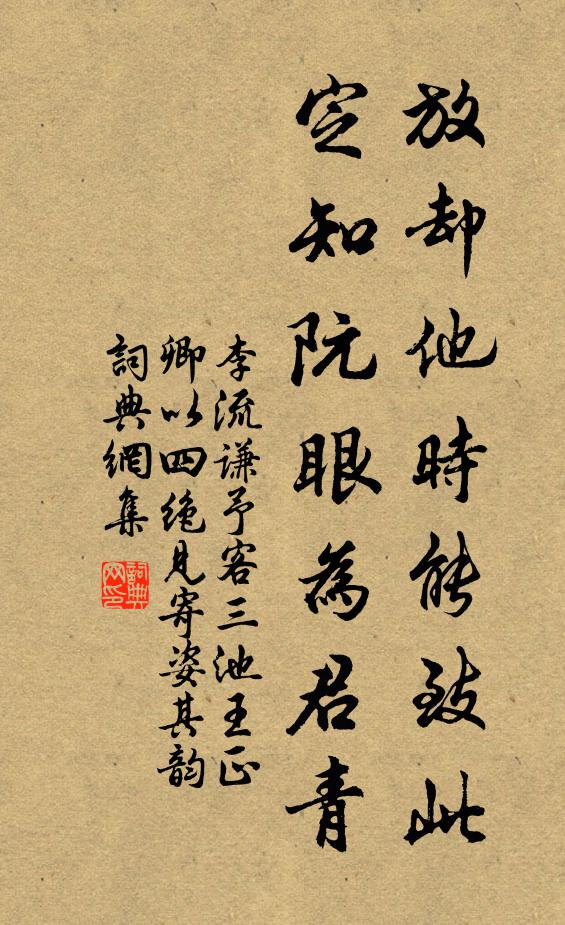 放却他時能致此
定知阮眼為君青
李流谦予客三池王正
卿以四绝見寄姿其韵
詞典網集
詞典網印